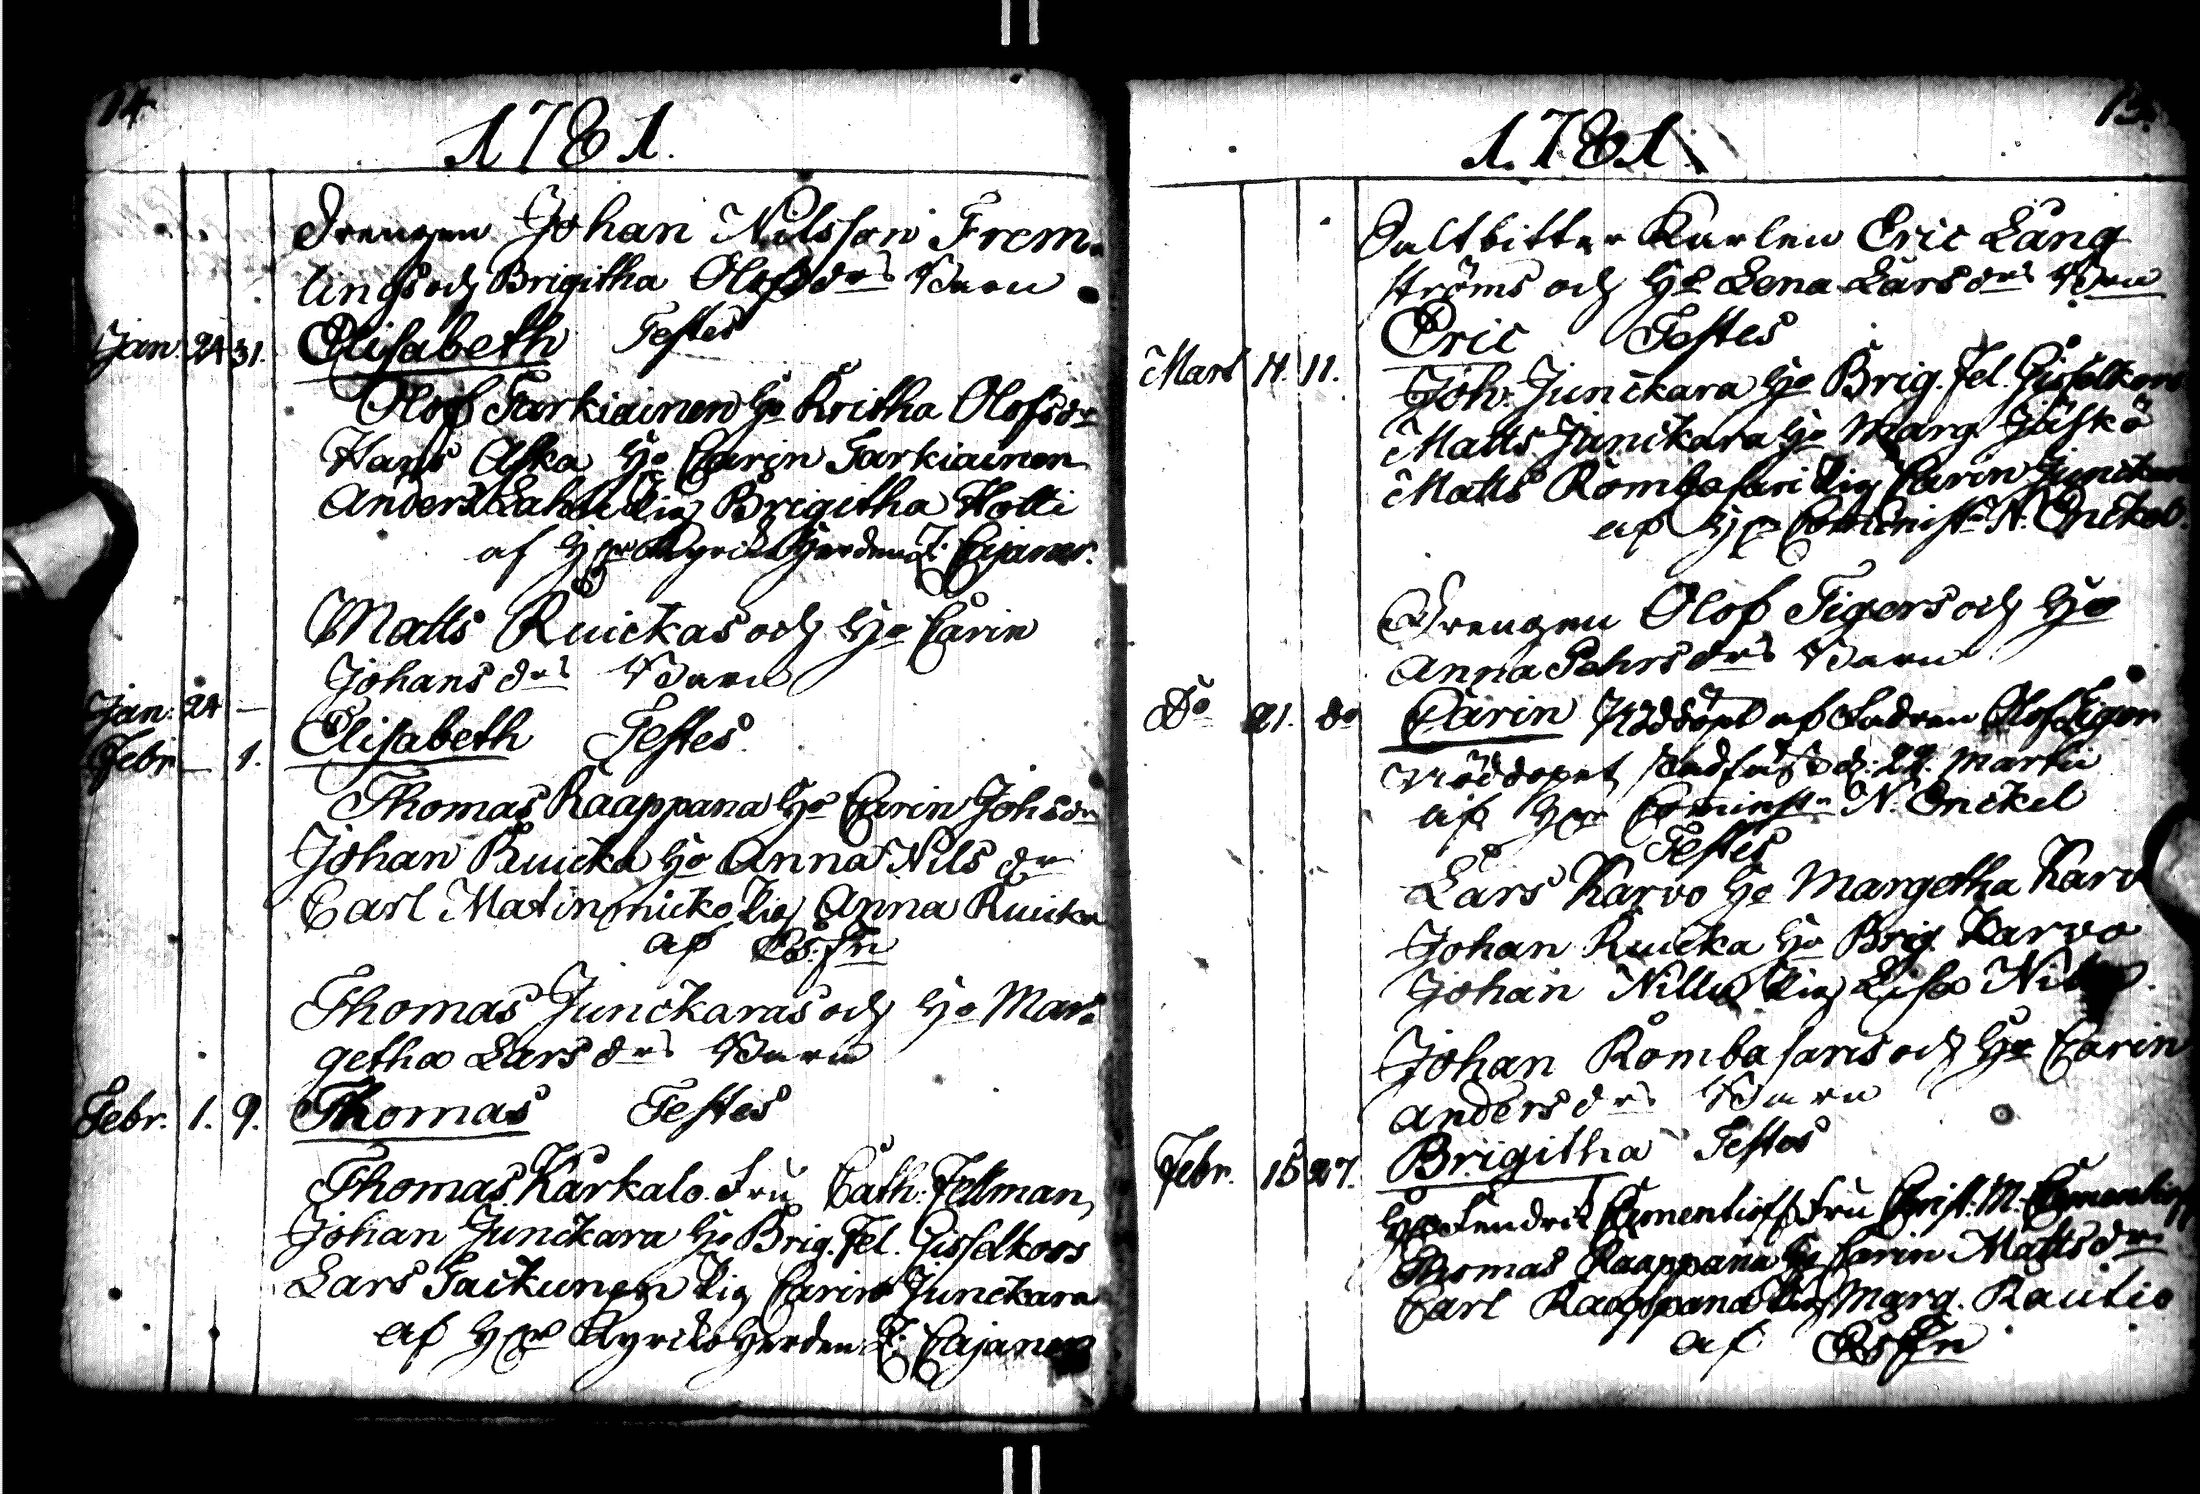 14.
1781.
Drengen Johan Nilsson Frem-
lings och Brigitha Olofsdrs Barn
Jan. 24 31. Elisabeth Testes
Olof Tarkiainen Ho Britha Olofsdr
Hans Aska Ho Carin Tarkiainen
Anders Lahti Pig Brigitha Hotti
af Hr Kyrckoherden J. Cajanus.
Matts Ruickas och Ho Carin
Johansdrs Barn
Jan: 24 —
Febr — 1. Elisabeth Testes.
Thomas Raappana Ho Carin Johsdr
Johan Ruicka Ho Anna Nilsdr
Carl Matinmicko Pig Anna Ruicka
af Ds. Hr
Thomas Junckaras och Ho Mar-
getha Larsdrs Barn
Febr. 1. 9. Thomas Testes
Thomas Karkalo Fru Cath: Fellman
Johan Junckara Ho Brig. Fel. Gisselkors
Lars Tackunen Pig Carin Junckara
af Hr Kyrckoherden J. Cajanus
15.
1781.
Saltbittar Karlen Eric Lång
ströms och Ho Lena Larsdrs Barn
Eric Testes
Mart 11. Joh. Junckara Ho Brig. Fel. Gisselkors
Matts Junckara Ho Marg. Jäskö
Matts Rombasari Pig Carin Junckara
af Hr Comminist N. Onckel.
Drengen Olof Tigers och Ho
Anna Pehrsdrs Barn
Do 21. do Carin Nöddöpt af Fadren Olof Tiger
Nöddopet stadfäst d. 22. Martii
af Hr Cominstr N. Onckel
Testes
Lars Karvo Ho Margetha Karvo
Johan Ruicka Ho Brig. Karvo
Johan Nillu Pig Lisa
Johan Rombasaris och Ho Carin
Andersdrs Barn
Febr. 15 27. Brigitha Testes
Hr Hendric Clementioff Fru Christ. M. Clementioff
Thomas Raappana Ho Carin Mattsdr
Carl Raappana Pig Marg. Rautio
af Ds Hr